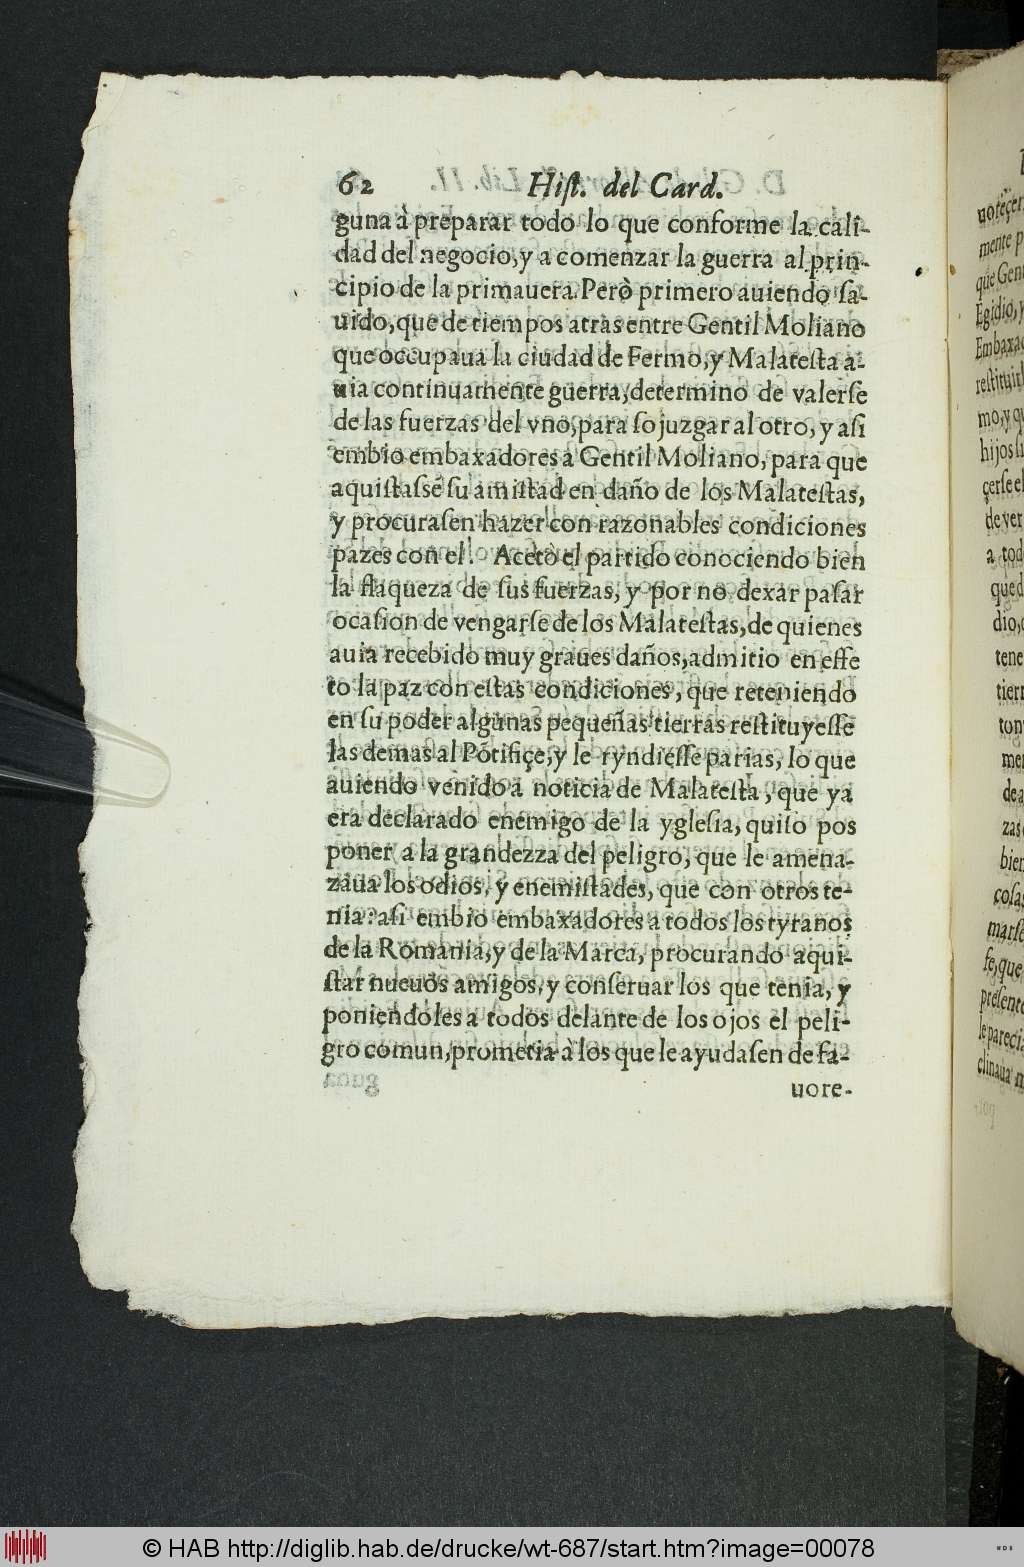 62 Hiſt. del Card.
guna à preparar todo lo que conforme la cali-
dad del negocio, y a comenzar la guerra al prin-
cipio de la primauera. Però primero auiendo ſa-
uido, que de tiempos atras entre Gentil Moliano
que occupaua la ciudad de Fermo, y Malateſta a-
uia continuamente guerra, determino de valerſe
de las fuerzas del vno, para ſojuzgar al otro, y aſi
embio embaxadores à Gentil Moliano, para que
aquiſtaſſe ſu amiſtad en daño de los Malateſtas,
y procuraſen hazer con razonables condiciones
pazes con el. Acetò el partido conociendo bien
la flaqueza de ſus fuerzas, y por no dexar paſar
ocaſion de vengarſe de los Malateſtas, de quienes
auia recebido muy graues daños, admitio en effe
to la paz con eſtas condiciones, que reteniendo
en ſu poder algunas pequeñas tierras reſtituyeſſe
las demas al Põtifiçe, y le ryndieſſe parias, lo que
auiendo venido à noticia de Malateſta, que ya
era declarado enemigo de la ygleſia, quiſo pos
poner a la grandezza del peligro, que le amena-
zaua los odios, y enemiſtades, que con otros te-
nia: aſi embio embaxadores a todos los tyranos
de la Romania, y de la Marca, procurando aqui-
ſtar nueuos amigos, y conſeruar los que tenia, y
poniendoles a todos delante de los ojos el peli-
gro comun, prometia à los que le ayudaſen de fa-
uore-
uoreçer
mente p
que Gent
Egidio, y
Embaxad
reſtituirl
mo, y qu
hijos ſi
çerſe el
de ver
a tod
que d
dio, c
tene
tierr
ton
me
de a
zas
bien
coſas
marſe
fe, que
preſente
le parecia
clinaua m
© HAB http://diglib.hab.de/drucke/wt-687/start.htm?image=00078